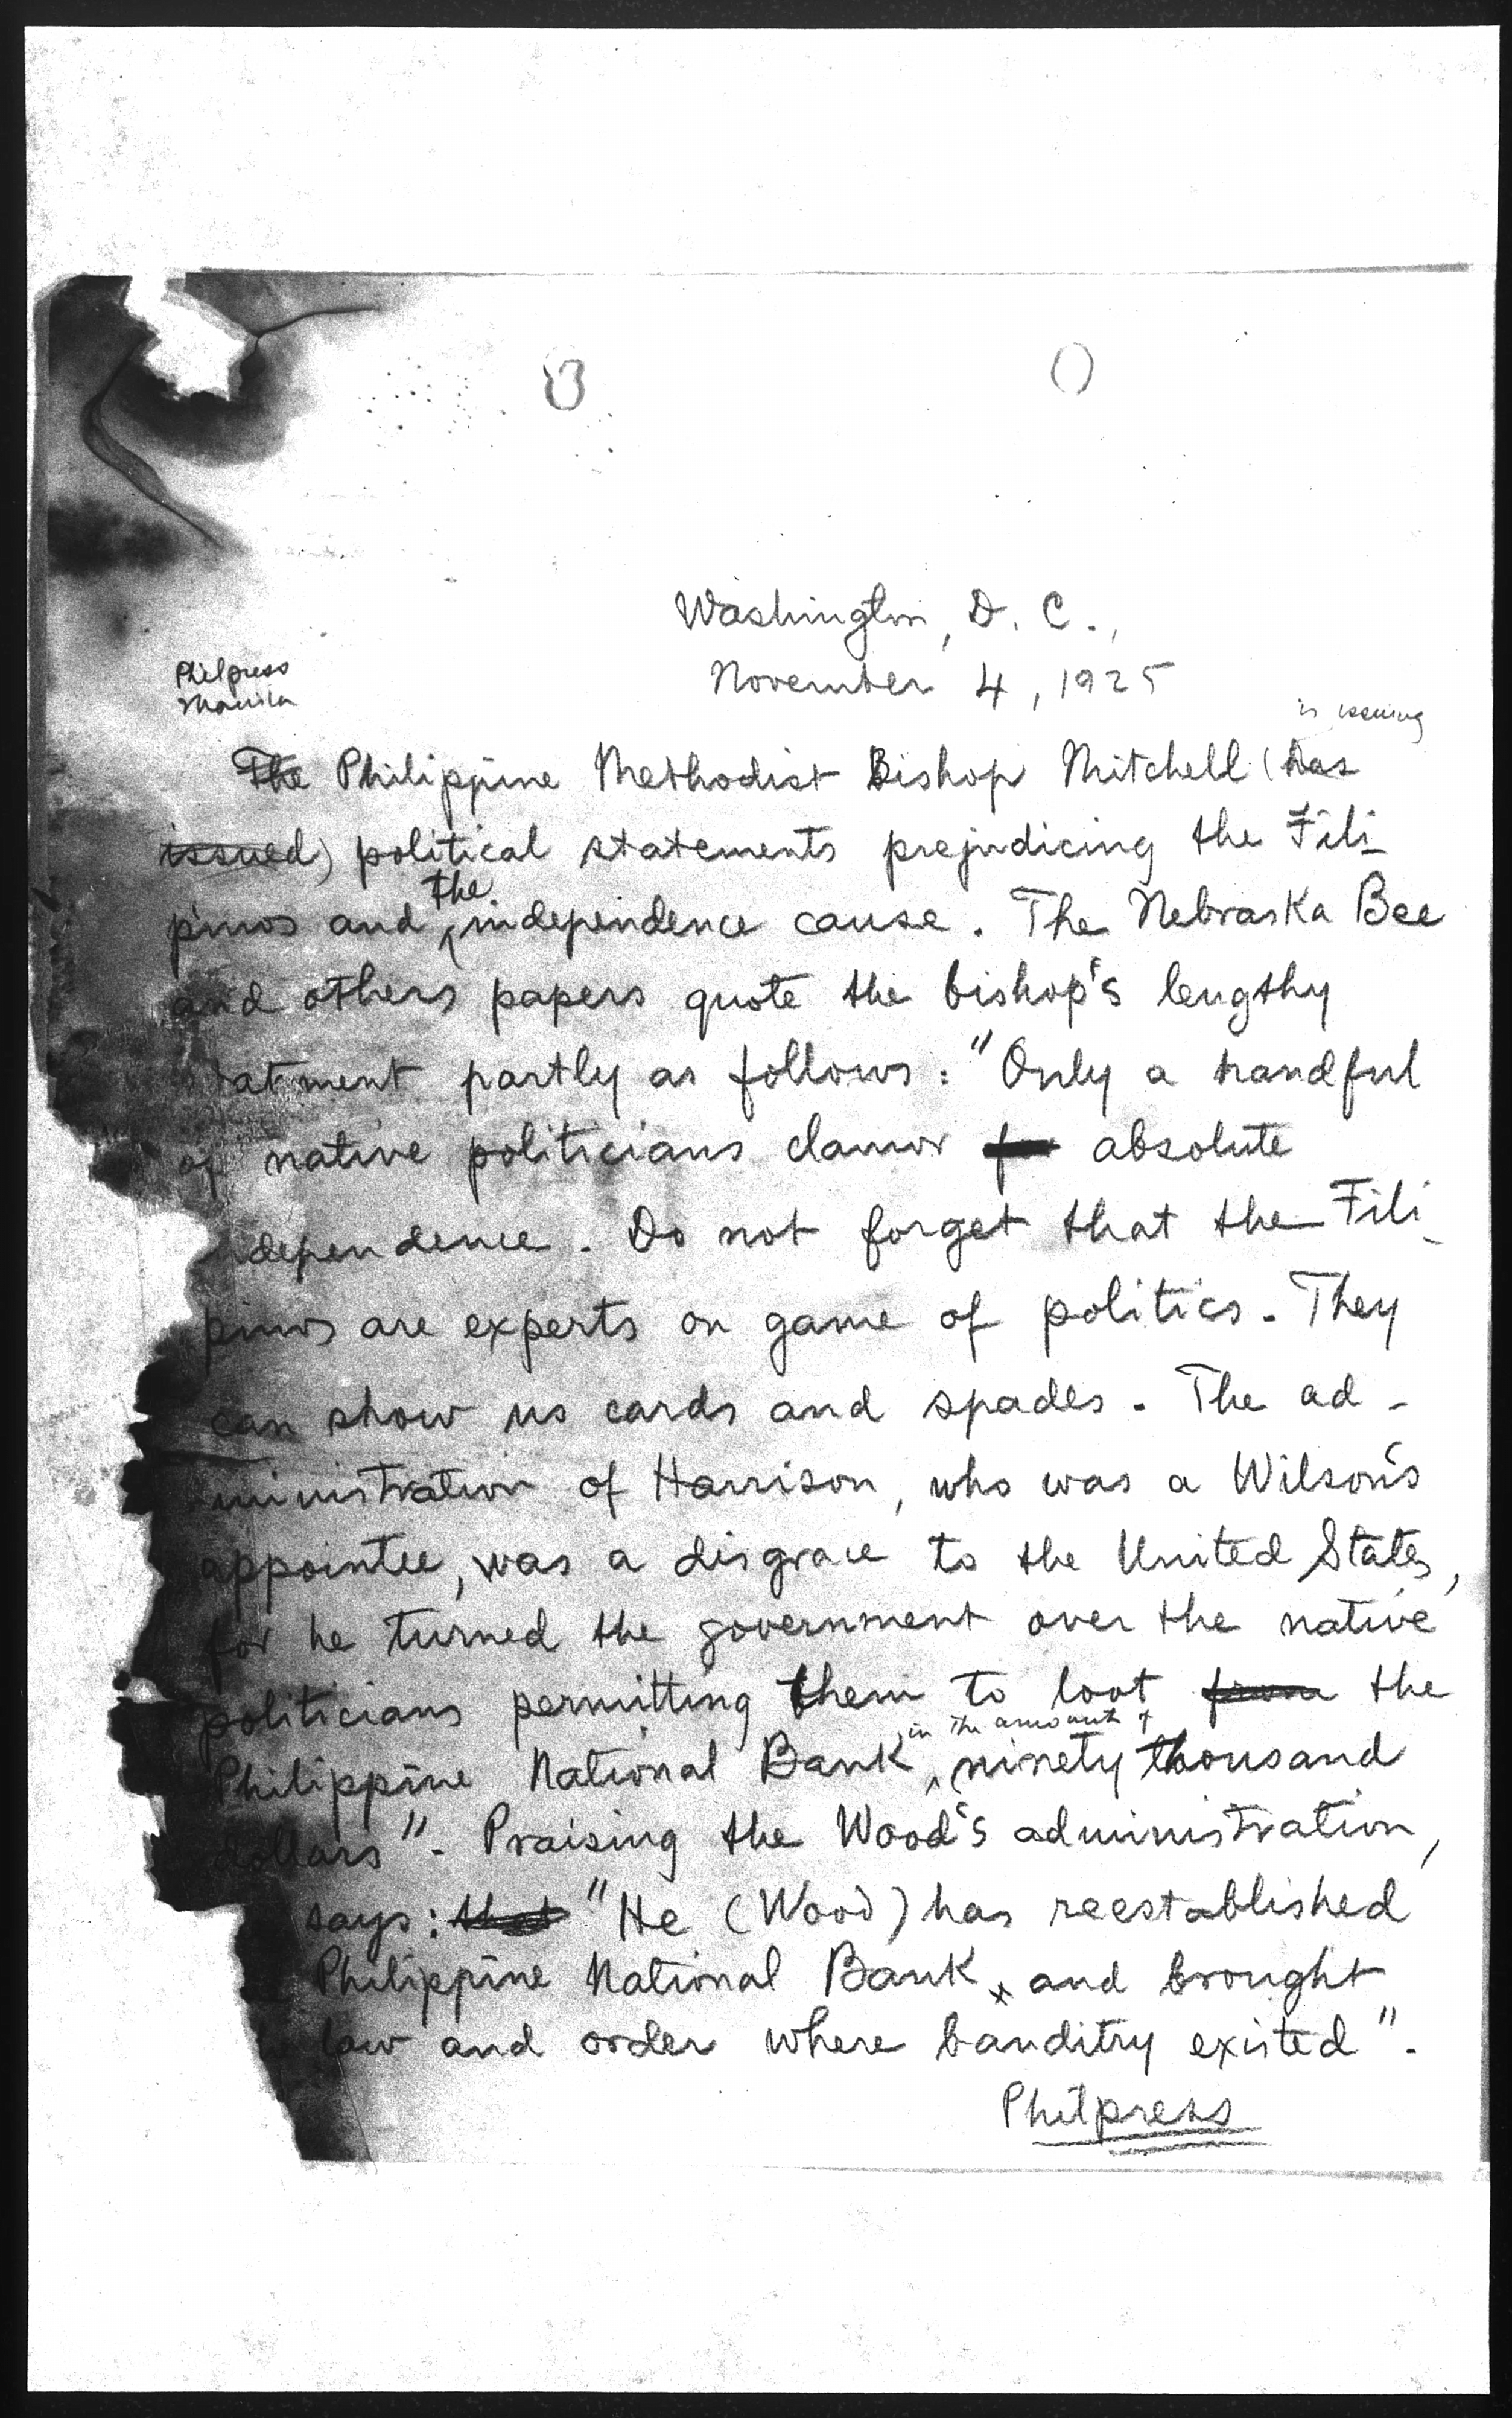 Washington, D. C.,
November 4, 1925
Philpress
Manila
is issuing
The Philippine Methodist Bishop Mitchell (has
issued) political statements prejudicing the Fili-
pinos and the independence cause. The Nebraska Bee
and others papers quote the bishop's lengthy
atment partly as follows: "Only a handful
of native politicians clamor for absolute
ndependence. Do not forget that the Fili-
pinos are experts on game of politics. They
can show us cards and spades. The ad-
ministration of Harrison, who was a Wilson's
appointee, was a disgrace to the United States,
for he turned the government over the native
politicians permitting them to loot from the
in the amount of
Philippine National Bank, ninety thousand
dollars". Praising the Wood's administration,
says: that "He (Wood) has reestablished
Philippine National Bank and brought
law and order where banditry existed".
Philpress